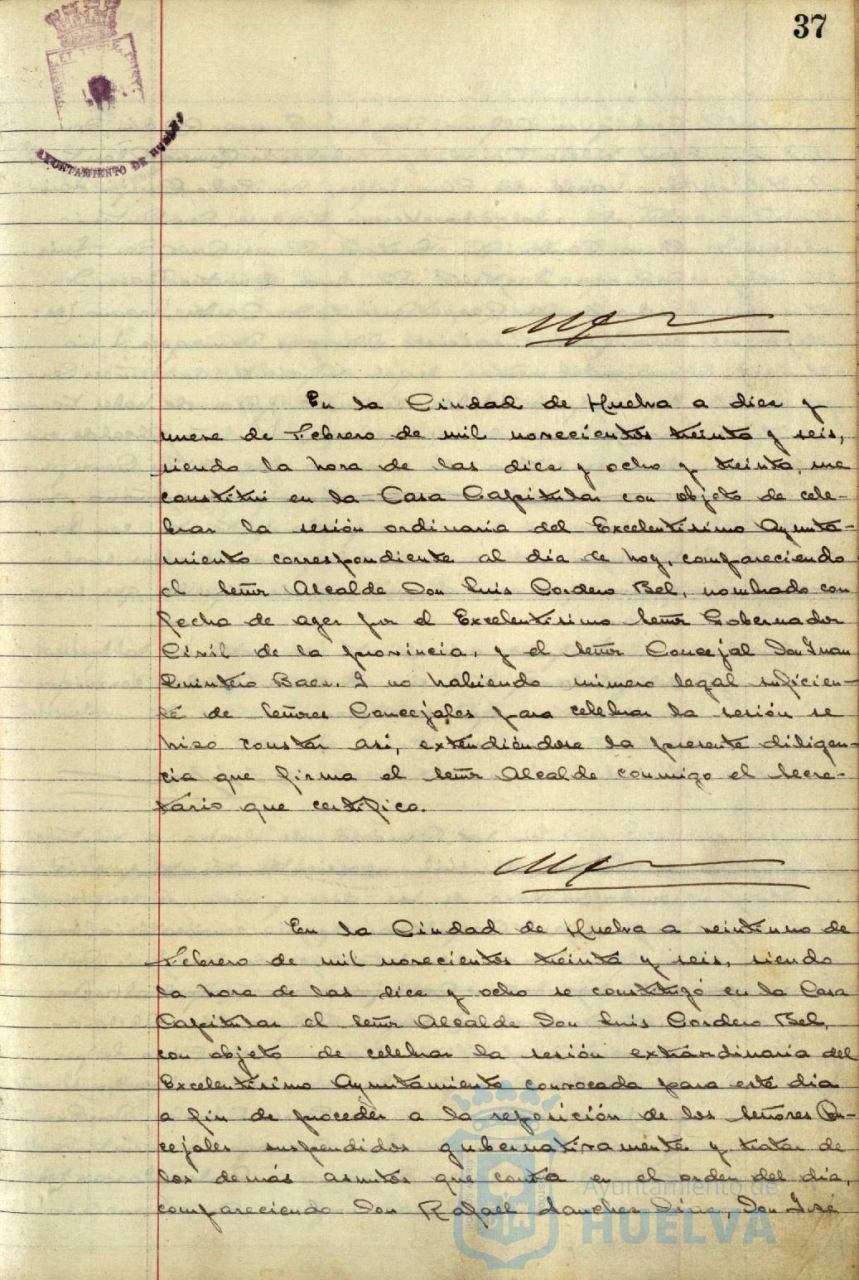 37
AYUNTAMIENTO DE HUELVA
En la Ciudad de Huelva a diez y
nueve de Febrero de mil novecientos treinta y seis,
siendo la hora de las diez y ocho y treinta, me
constituí en la Casa Capitular con objeto de cele-
brar la sesión ordinaria del Excelentísimo Ayunta-
miento correspondiente al día de hoy, compareciendo
el Señor Alcalde Don Luis Cordero Bel, nombrado con
fecha de ayer por el Excelentísimo Señor Gobernador
Civil de la provincia, y el Señor Concejal Don Juan
Quintero Baez. Y no habiendo número legal suficien-
te de Señores Concejales para celebrar la sesión se
hizo constar así, extendiéndose la presente diligen-
cia que firma el Señor Alcalde conmigo el Secre-
tario que certifico.
En la Ciudad de Huelva a veintiuno de
Febrero de mil novecientos treinta y seis, siendo
la hora de las diez y ocho se constituyó en la Casa
Capitular el Señor Alcalde Don Luis Cordero Bel,
con objeto de celebrar la sesión extraordinaria del
Excelentísimo Ayuntamiento convocada para este día
a fin de proceder a la reposición de los Señores Con-
cejales suspendidos gubernativamente y tratar de
los demás asuntos que consta en el orden del día,
compareciendo Don Rafael Sanchez Diaz, Don José
Ayuntamiento de
HUELVA